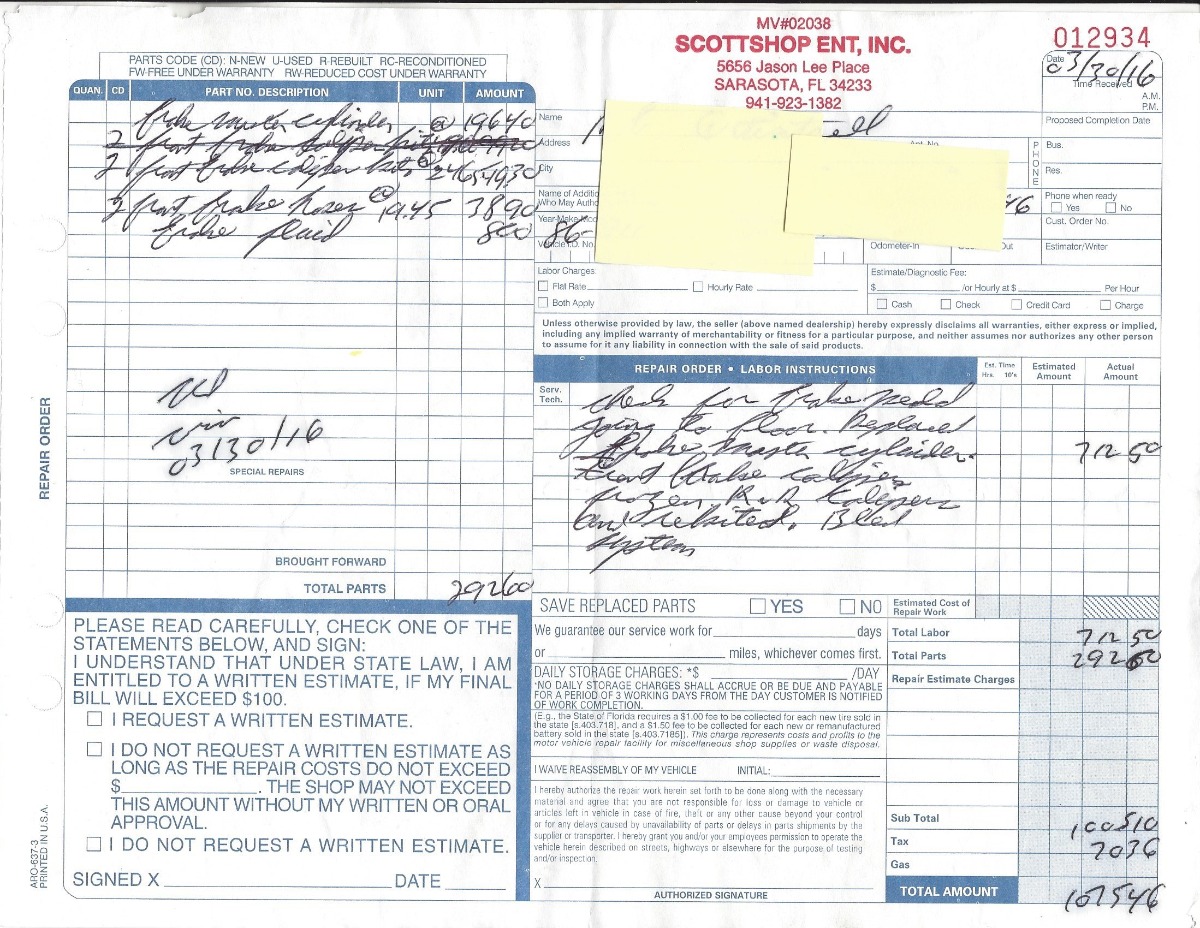 MV#02038
SCOTTSHOP ENT, INC.
5656 Jason Lee Place
SARASOTA, FL 34233
941-923-1382
012934
Date 03/30/16
Time Received
A.M.
P.M.
Proposed Completion Date
PARTS CODE (CD): N-NEW U-USED R-REBUILT RC-RECONDITIONED
FW-FREE UNDER WARRANTY RW-REDUCED COST UNDER WARRANTY
QUAN. CD PART NO. DESCRIPTION UNIT AMOUNT
brake master cylinder @ 196 40
2 front brake caliper kits @ 24 65 49 30
2 front brake hoses @ 19.45 38 90
brake fluid 8 00
03/30/16
SPECIAL REPAIRS
BROUGHT FORWARD
TOTAL PARTS 292 60
REPAIR ORDER
Name
Address
City
Name of Additio
Who May Autho
Year-Make-Mod 86-
Vehicle I.D. No.
PHONE
Bus.
Res.
Phone when ready
Yes No
Cust. Order No.
Odometer-In Out
Estimator/Writer
Labor Charges:
Flat Rate Hourly Rate
Both Apply
Estimate/Diagnostic Fee:
$ /or Hourly at $ Per Hour
Cash Check Credit Card Charge
Unless otherwise provided by law, the seller (above named dealership) hereby expressly disclaims all warranties, either express or implied,
including any implied warranty of merchantability or fitness for a particular purpose, and neither assumes nor authorizes any other person
to assume for it any liability in connection with the sale of said products.
REPAIR ORDER • LABOR INSTRUCTIONS
Est. Time
Hrs. 10's
Estimated Amount
Actual Amount
Serv. Tech.
check for brake pedal
going to floor. Replaced
brake master cylinder. 712 50
front brake calipers
frozen. R&R Calipers
and rebuted. Bled
system
SAVE REPLACED PARTS YES NO
Estimated Cost of Repair Work
We guarantee our service work for days
or miles, whichever comes first.
Total Labor 712 50
Total Parts 292 60
Repair Estimate Charges
DAILY STORAGE CHARGES: *$ /DAY
*NO DAILY STORAGE CHARGES SHALL ACCRUE OR BE DUE AND PAYABLE
FOR A PERIOD OF 3 WORKING DAYS FROM THE DAY CUSTOMER IS NOTIFIED
OF WORK COMPLETION.
(E.g., the State of Florida requires a $1.00 fee to be collected for each new tire sold in
the state [s.403.718], and a $1.50 fee to be collected for each new or remanufactured
battery sold in the state [s.403.7185]). This charge represents costs and profits to the
motor vehicle repair facility for miscellaneous shop supplies or waste disposal.
I WAIVE REASSEMBLY OF MY VEHICLE INITIAL:
I hereby authorize the repair work herein set forth to be done along with the necessary
material and agree that you are not responsible for loss or damage to vehicle or
articles left in vehicle in case of fire, theft or any other cause beyond your control
or for any delays caused by unavailability of parts or delays in parts shipments by the
supplier or transporter. I hereby grant you and/or your employees permission to operate the
vehicle herein described on streets, highways or elsewhere for the purpose of testing
and/or inspection.
X
AUTHORIZED SIGNATURE
Sub Total 1005 10
Tax 70 36
Gas
TOTAL AMOUNT 1075 46
PLEASE READ CAREFULLY, CHECK ONE OF THE
STATEMENTS BELOW, AND SIGN:
I UNDERSTAND THAT UNDER STATE LAW, I AM
ENTITLED TO A WRITTEN ESTIMATE, IF MY FINAL
BILL WILL EXCEED $100.
I REQUEST A WRITTEN ESTIMATE.
I DO NOT REQUEST A WRITTEN ESTIMATE AS
LONG AS THE REPAIR COSTS DO NOT EXCEED
$ . THE SHOP MAY NOT EXCEED
THIS AMOUNT WITHOUT MY WRITTEN OR ORAL
APPROVAL.
I DO NOT REQUEST A WRITTEN ESTIMATE.
SIGNED X DATE
ARO-637-3
PRINTED IN U.S.A.